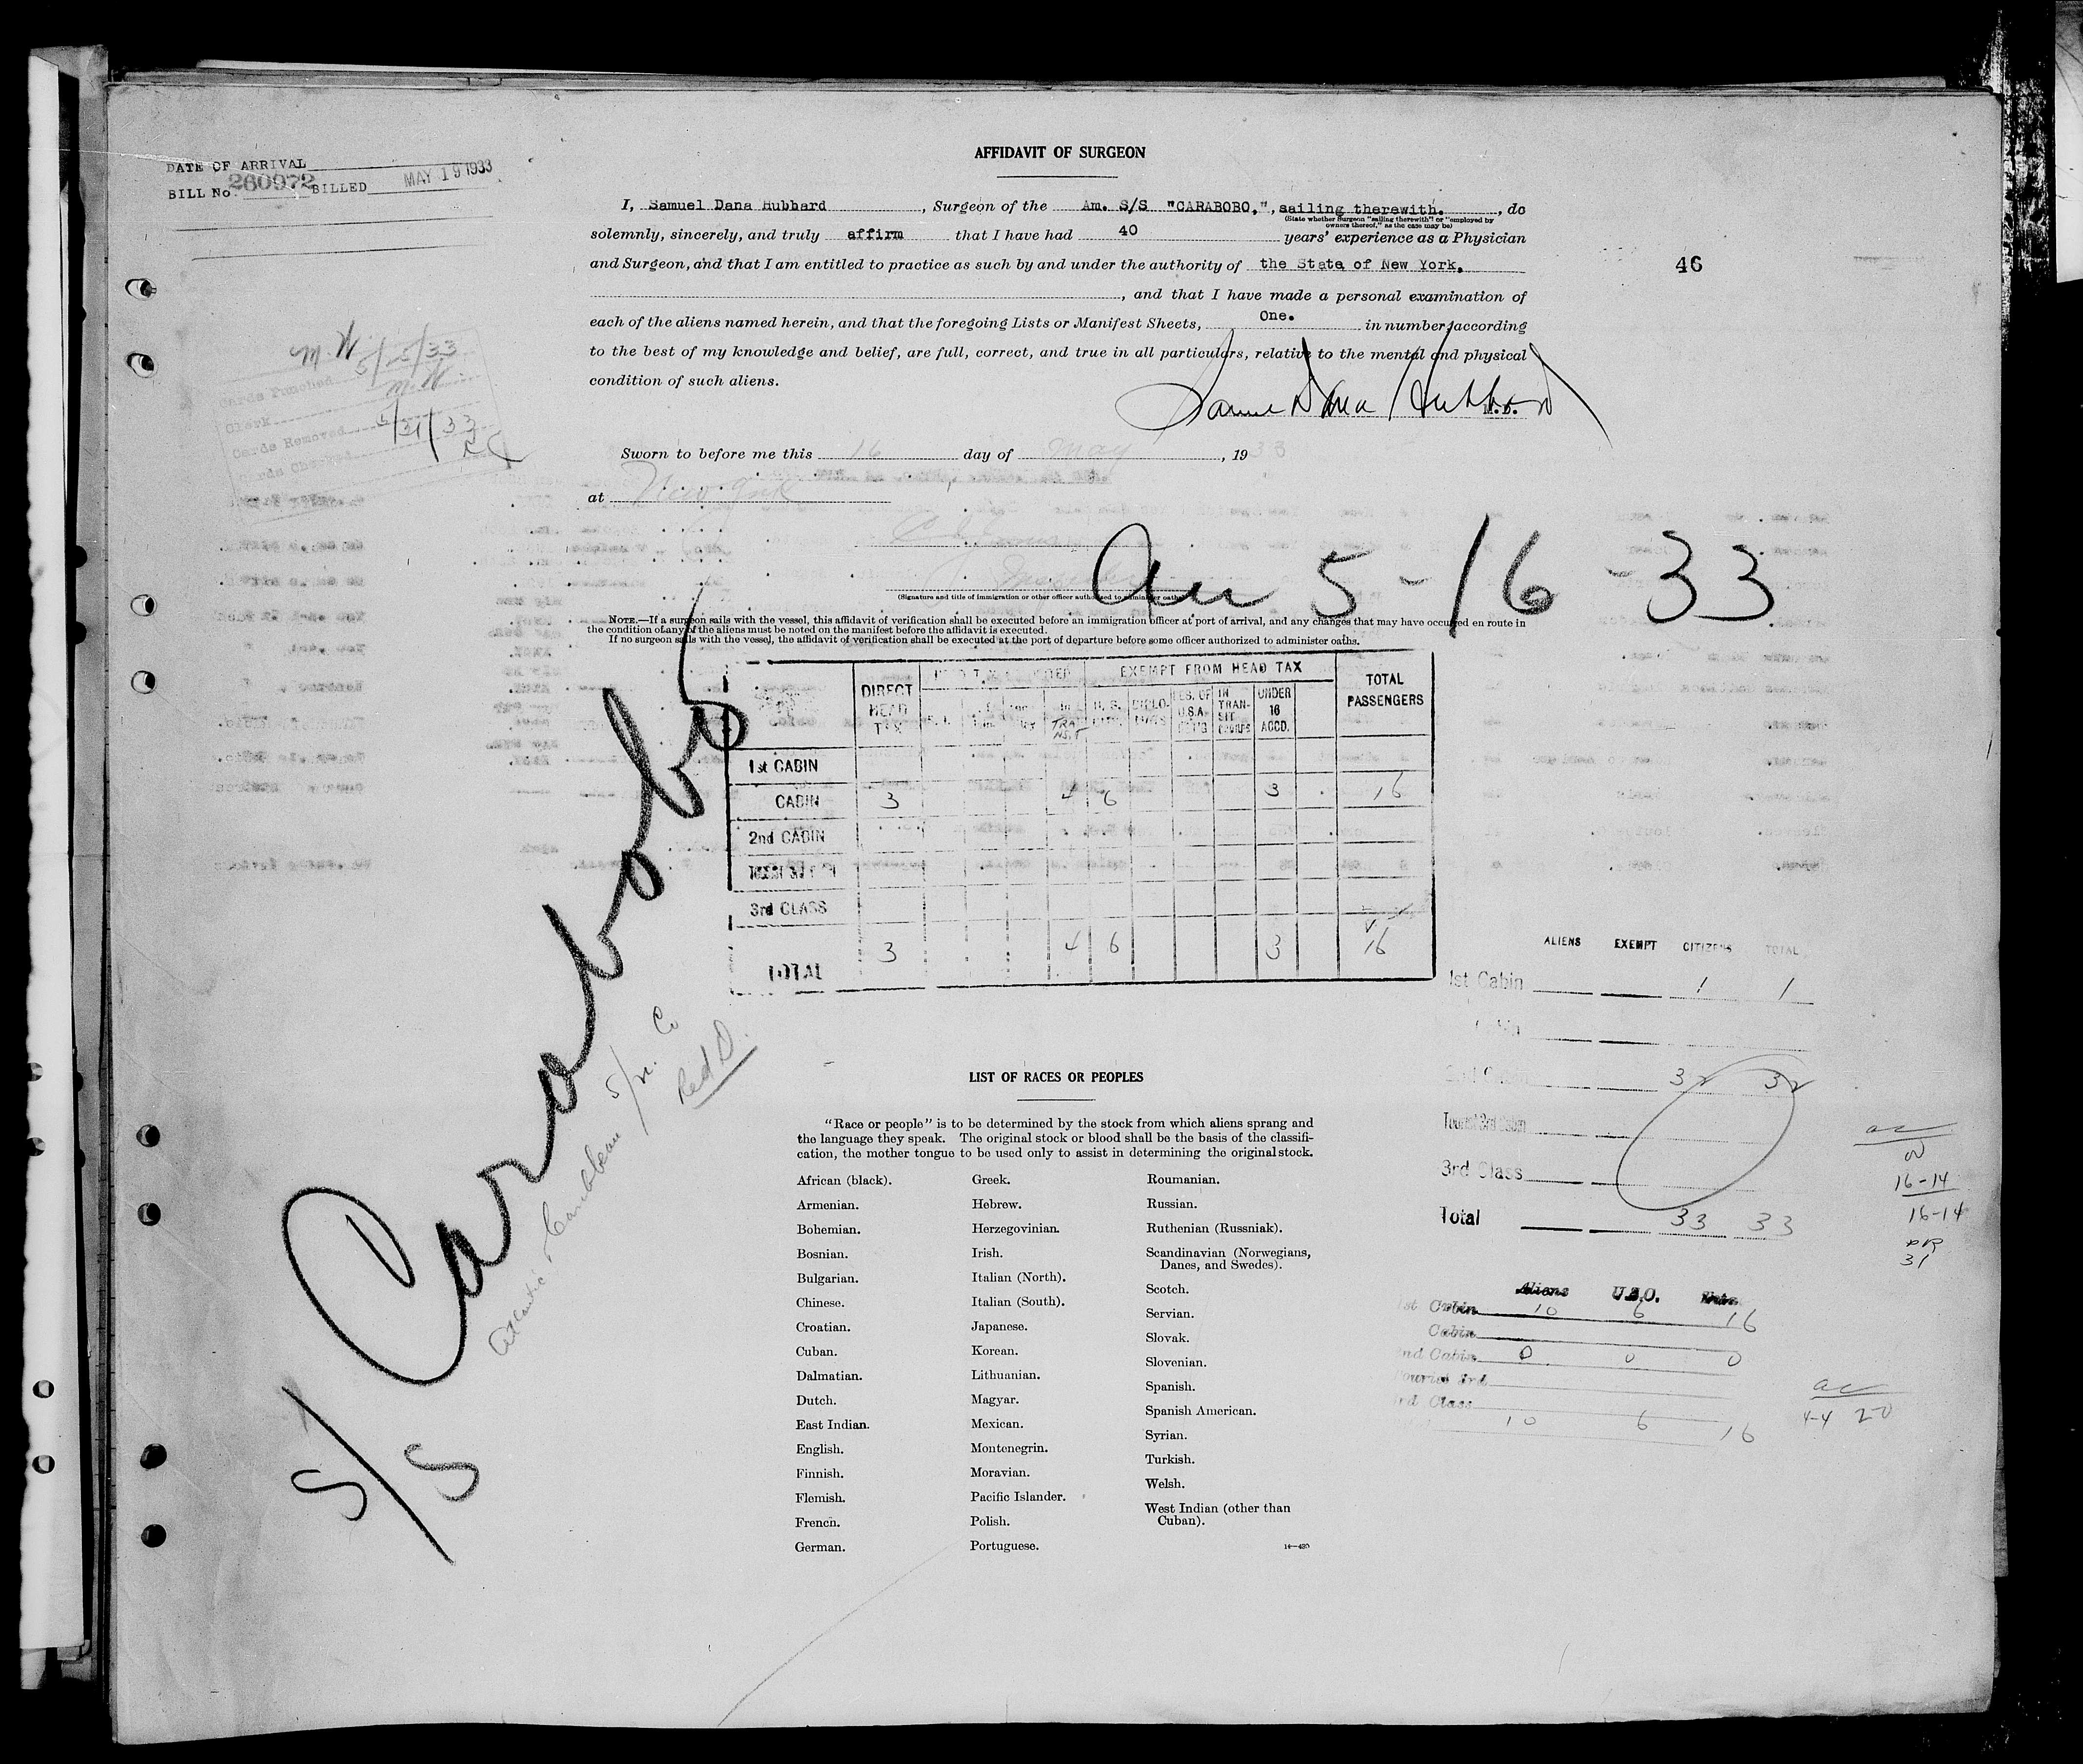 DATE OF ARRIVAL
BILL No. 260972 BILLED MAY 19 1933
AFFIDAVIT OF SURGEON
I, Samuel Dana Hubbard, Surgeon of the Am. S/S "CARABOBO,", sailing therewith., do
(State whether Surgeon "sailing therewith" or "employed by
owners thereof," as the case may be)
solemnly, sincerely, and truly affirm that I have had 40 years' experience as a Physician
and Surgeon, and that I am entitled to practice as such by and under the authority of the State of New York.
, and that I have made a personal examination of
each of the aliens named herein, and that the foregoing Lists or Manifest Sheets, One. in number, according
to the best of my knowledge and belief, are full, correct, and true in all particulars, relative to the mental and physical
condition of such aliens.
46
M.N. 5/5/33
Cards Punched
M.N.
Clerk
Cards Removed 5/31/33
Cards Checked
Samuel Dana Hubbard
M.D.
Sworn to before me this 16 day of May, 1933
at New York
Inspector
(Signature and title of immigration or other officer authorized to administer oaths.)
Arr 5-16-33
NOTE.—If a surgeon sails with the vessel, this affidavit of verification shall be executed before an immigration officer at port of arrival, and any changes that may have occurred en route in
the condition of any of the aliens must be noted on the manifest before the affidavit is executed.
If no surgeon sails with the vessel, the affidavit of verification shall be executed at the port of departure before some officer authorized to administer oaths.
DIRECT HEAD TAX
EXEMPT FROM HEAD TAX
TOTAL PASSENGERS
TRANSIT
U. S.
DIPLOMATS
RES. OF U.S.A.
IN TRANSIT
UNDER 16 ACCD.
1st CABIN
CABIN 3 4 6 3 16
2nd CABIN
3rd CLASS
TOTAL 3 4 6 3 16
S/S Carabobo
Atlantic & Caribbean S/N. Co
Red D.
ALIENS EXEMPT CITIZENS TOTAL
1st Cabin 1 1
Cabin
2nd Cabin 32 32
Tourist 3rd Cabin
3rd Class
Total 33 33
16-14
16-14
31
Aliens U.S.C.
1st Cabin 10 6 16
Cabin
2nd Cabin 0 0 0
Tourist 3rd
3rd Class
10 6 16
4-4 20
LIST OF RACES OR PEOPLES
"Race or people" is to be determined by the stock from which aliens sprang and
the language they speak. The original stock or blood shall be the basis of the classifi-
cation, the mother tongue to be used only to assist in determining the original stock.
African (black).
Armenian.
Bohemian.
Bosnian.
Bulgarian.
Chinese.
Croatian.
Cuban.
Dalmatian.
Dutch.
East Indian.
English.
Finnish.
Flemish.
French.
German.
Greek.
Hebrew.
Herzegovinian.
Irish.
Italian (North).
Italian (South).
Japanese.
Korean.
Lithuanian.
Magyar.
Mexican.
Montenegrin.
Moravian.
Pacific Islander.
Polish.
Portuguese.
Roumanian.
Russian.
Ruthenian (Russniak).
Scandinavian (Norwegians,
Danes, and Swedes).
Scotch.
Servian.
Slovak.
Slovenian.
Spanish.
Spanish American.
Syrian.
Turkish.
Welsh.
West Indian (other than
Cuban).